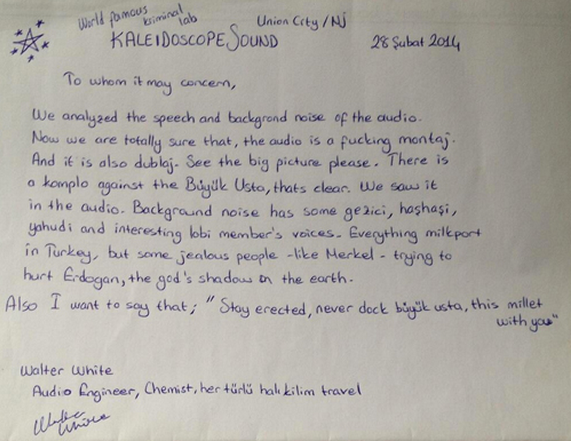 World famous kriminal lab
Union City/NJ
KALEIDOSCOPE SOUND
28 Şubat 2014
To whom it may concern,
We analyzed the speech and backgrond noise of the audio.
Now we are totally sure that, the audio is a fucking montaj.
And it is also dublaj. See the big picture please. There is
a komplo against the Büyük Usta, thats clear. We saw it
in the audio. Background noise has some gezici, haşhaşi,
yahudi and interesting lobi member's voices. Everything milkport
in Turkey, but some jealous people -like Merkel- trying to
hurt Erdogan, the god's shadow on the earth.
Also I want to say that; "Stay erected, never dock büyük usta, this millet
with you"
Walter White
Audio Engineer, Chemist, her türlü halı kilim travel
Walter White